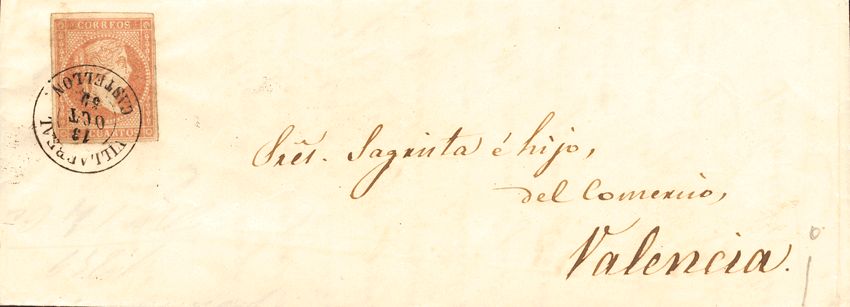 CORREOS
CUARTOS
VILLARREAL
13
OCT
CASTELLON
Sres. Sagrista é hijo,
del Comercio,
Valencia.